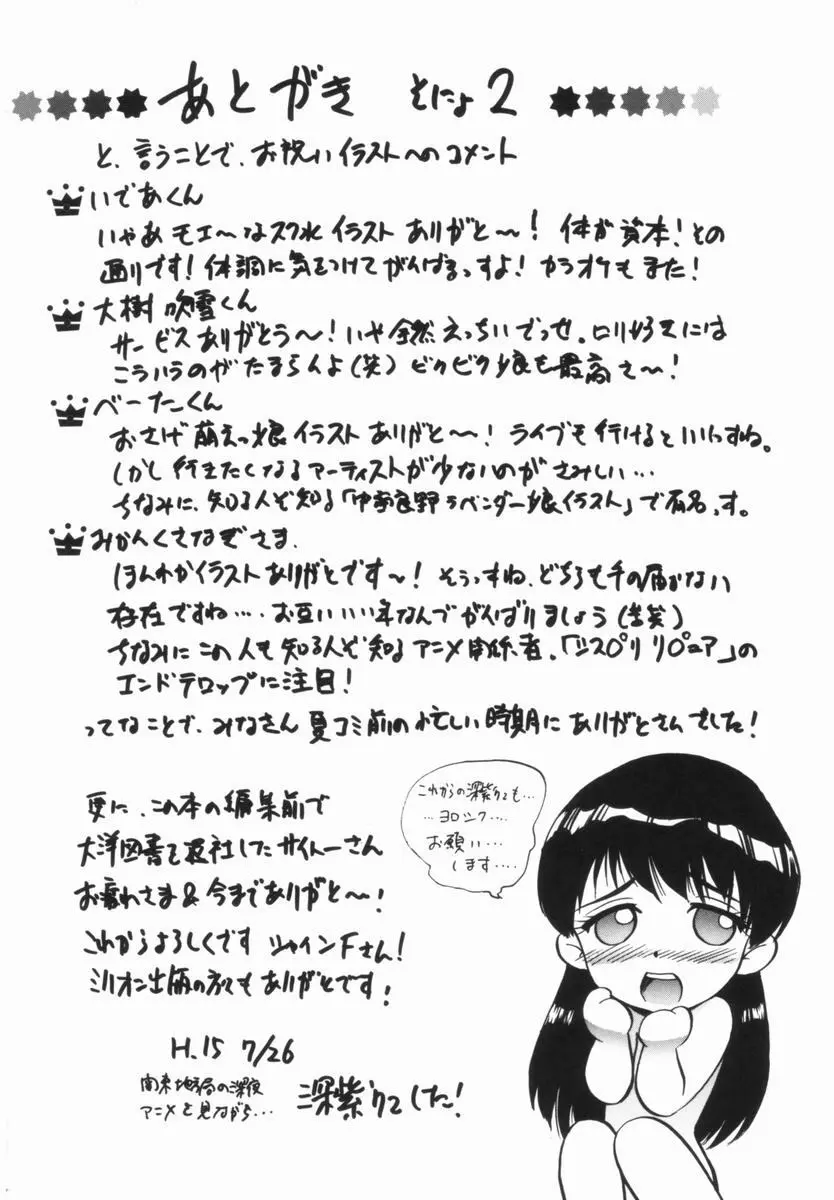 あとがき そにょ2
と、言うことで、お祝いイラストへのコメント
いであくん
いやあモエ〜なスク水イラストありがと〜！体が資本！その
通りです！体調に気をつけてがんばるっすよ！カラオケもまた！
大樹吹雪くん
サービスありがとう〜！いや全然えっちいでっせ。ロリ好きには
こういうのがたまらんよ(笑)ビクビク娘も最高さ〜！
べーたくん
おさげ萌えっ娘イラストありがと〜！ライブも行けるといいっすね。
しかし行きたくなるアーティストが少ないのがさみしい…
ちなみに、知る人ぞ知る「中富良野ラベンダー娘イラスト」で有名っす。
みかんくさなぎさま、
ほんわかイラストありがとです〜！そうっすね、どちらも手の届かない
存在ですね…。お互いいい年なんでがんばりましょう(苦笑)
ちなみにこの人も知る人ぞ知るアニメ関係者、「　　　」の
エンドテロップに注目！
ってなことで、みなさん夏コミ前の忙しい時期にありがとさんでした！
更に、この本の編集前で
大洋図書を退社したサイトーさん
お疲れさま&今までありがと〜！
これからよろしくです シャインFさん！
ミリオン出版の方々もありがとです！
これからの深紫 も…
…ヨロシク…
お願い…
します…
H.15 7/26
関東地方局の深夜
アニメを見ながら…
深紫 でした！